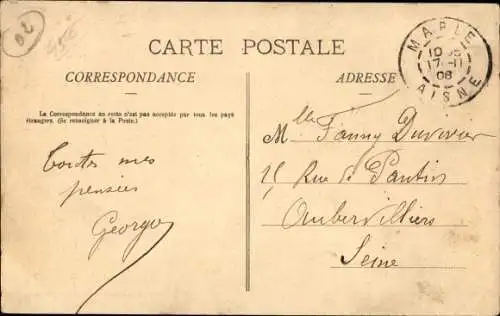 02
CARTE POSTALE
CORRESPONDANCE
ADRESSE
La Correspondance au recto n'est pas acceptée par tous les pays
étrangers. (Se renseigner à la Poste.)
MARLE
17-11
08
AISNE
Toutes mes
pensées
Georges
Mlle Fanny Duverer
Rue de Pantin
Aubervilliers
Seine